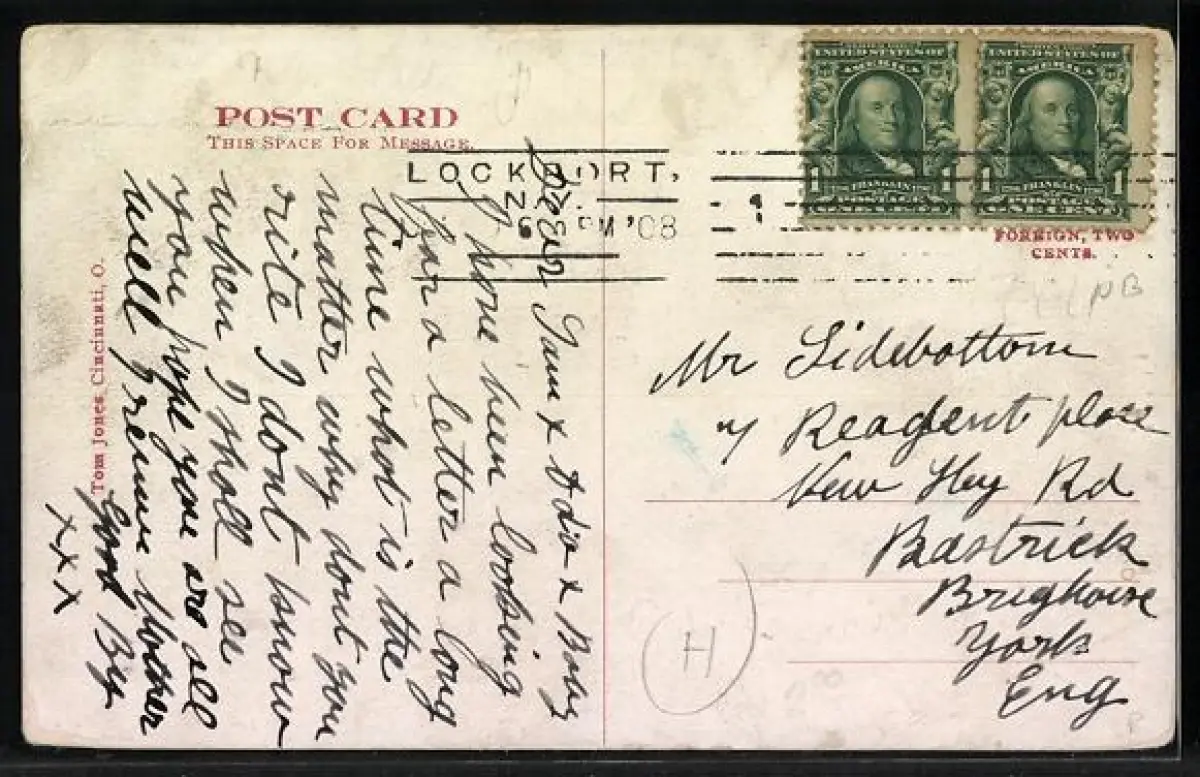 POST CARD
THIS SPACE FOR MESSAGE.
LOCKPORT,
N.Y.
6 PM '08
SERIES 1902
UNITED STATES OF
AMERICA
1 FRANKLIN 1
POSTAGE
ONE CENT
UNITED STATES OF
AMERICA
1 FRANKLIN 1
POSTAGE
ONE CENT
FOREIGN, TWO
CENTS.
Tom Jones, Cincinnati, O.
Dear Sam & & Baby
I have been looking
for a letter a long
time what is the
matter why dont you
rite I dont know
when I shall see
you hope you are all
well I remain Mother
Good By
x x x
Mr Sidebottom
7 Reagent place
New Hey Rd
Rastrick
Brighouse
York
Eng
H